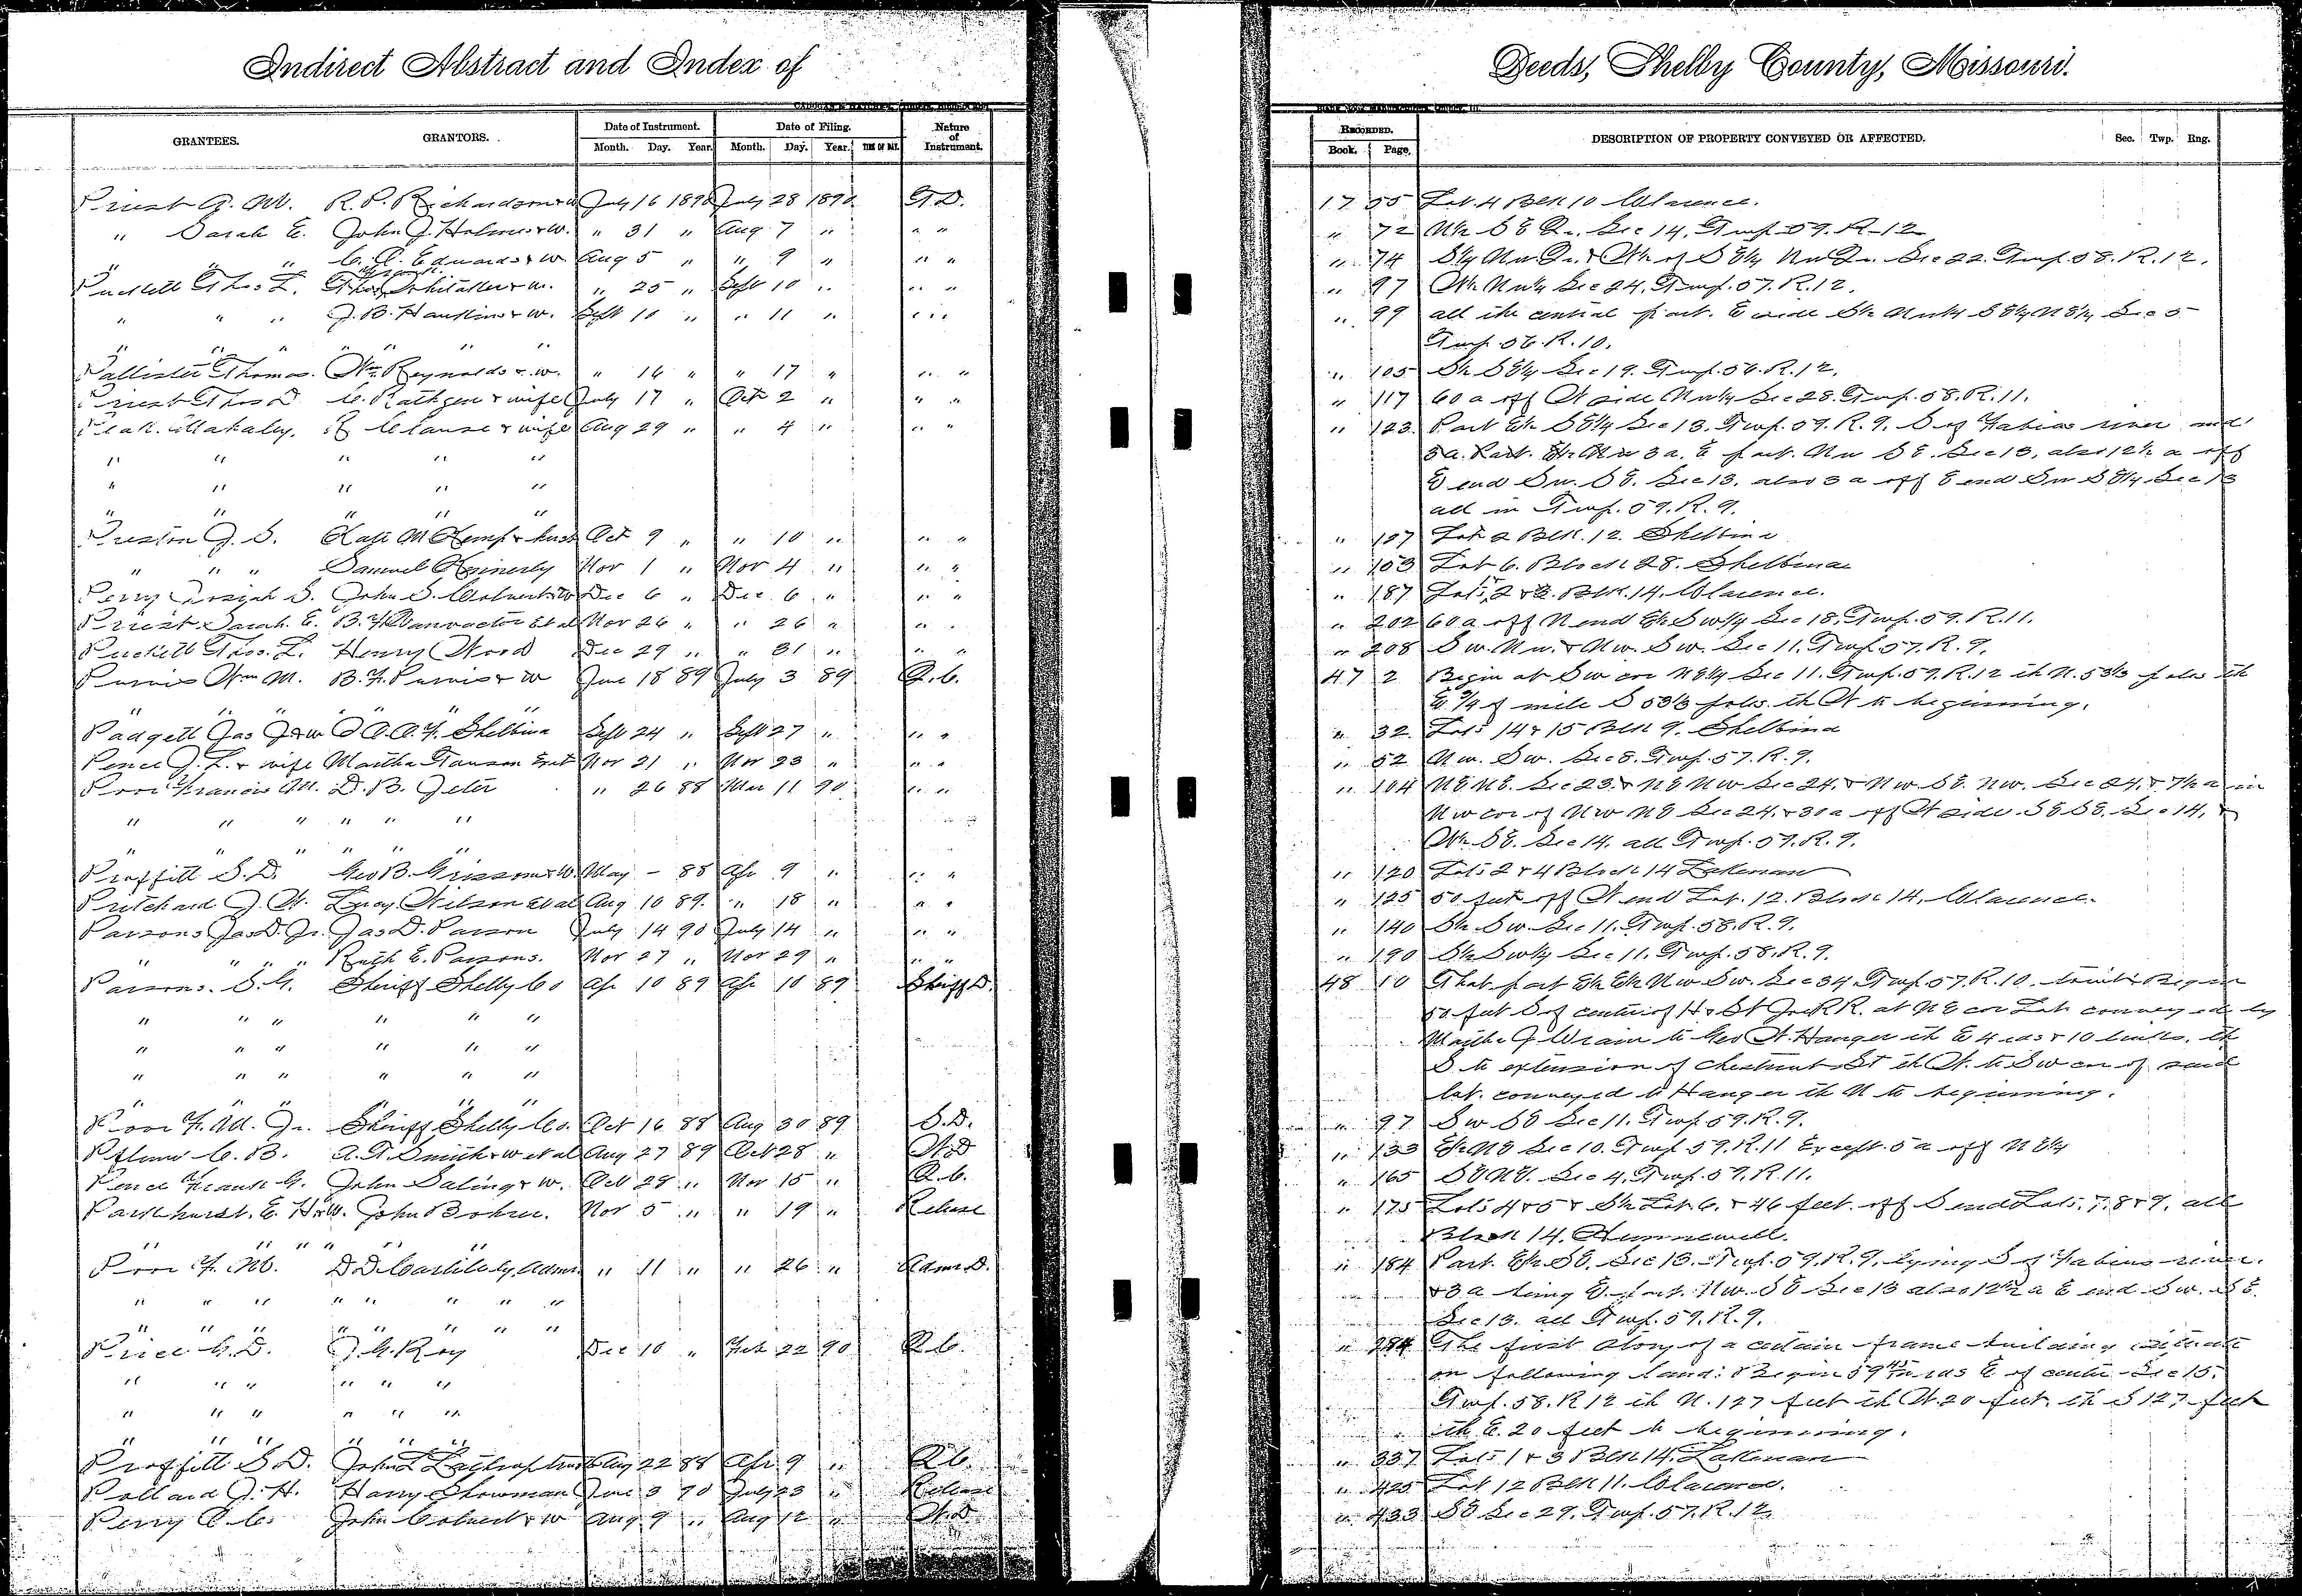 Indirect Abstract and Index of Deeds, Shelby County, Missouri.
GRANTEES. GRANTORS. Date of Instrument. Date of Filing. Nature of Instrument. RECORDED. DESCRIPTION OF PROPERTY CONVEYED OR AFFECTED. Sec. Twp. Rng.
Month. Day. Year. Month. Day. Year. TIME OF DAY. Book. Page.
Priest A. M. R. P. Richardson July 16 1890 July 28 1890 17 55 Lot 4 Blk 10 Clarence.
" Sarah E. John J. Holmes & W. " 31 " Aug 7 " " " " 72 N½ S E Qr. Sec 14. Twp 59. R-12
" " " C. A. Edwards & W Aug 5 " " 9 " " " " 74 S½ Nw. Qr. & W½ of S E¼ Nw Qr. Sec 22. Twp. 58. R. 12.
Puckett Thos. L. Whitaker & W. " 25 " Sept 10 " " " " 97 W½ Nw¼ Sec 24. Twp. 57. R. 12.
" " " J. B. Hawkins & W. Sept 10 " " 11 " " " " 99 all the central part. E side S½ Nw¼ S E¼ N E¼ Sec 5
" " " " " " Twp. 56. R. 10.
Pallister Thomas. Wm Reynolds & W. " 16 " " 17 " " " " 105 S½ S E¼ Sec 19. Twp. 56. R. 12.
Priest Thos D. C. Rathgen & wife July 17 " Oct 2 " " " " 117 60 a off W side Nw¼ Sec 28. Twp. 58. R. 11.
Peak. Mahaley. Clause & wife Aug 29 " " 4 " " " " 123. Part E½ S E¼ Sec 13. Twp. 59. R. 9. S of Fabius river and
" " " " " 3 a. Part. E½ Nw 3 a. E part. Nw S E. Sec 13. also 12½ a off
" " " " " E end Sw. S E. Sec 13. also 3 a off E end Sw S E¼ Sec 13
" " " " " all in Twp. 59. R. 9.
Preston J. S. Kate M Kemp & husb Oct 9 " " 10 " " " " 137 Lot 2 Blk. 12. Shelbina
" " " Samuel Kennerly Nov 1 " Nov 4 " " " " 153 Lot 6. Block 28. Shelbina
Perry Josiah S. John S. Colvert & W Dec 6 " Dec. 6 " " " " 187 Lots 1, 2 & 3. Blk. 14. Clarence.
Priest Sarah. E. B. F. Vanvactor et al Nov 26 " " 26 " " " " 202 60 a off N end E½ Sw¼ Sec 18. Twp. 59. R. 11.
Puckett Thos. L. Henry Wood Dec 29 " " 31 " " " " 208 Sw. Nw. & Nw. Sw. Sec 11. Twp. 57. R. 9.
Purvis Wm M. B. F. Purvis & W June 18 89 July 3 89 Q. C. 47 2 Begin at Sw cor N E¼ Sec 11. Twp. 59. R. 12 th N. 53⅓ poles th
" " " " " E ¾ of mile S 53⅓ poles. th W to beginning.
Padgett Jas J & w Shelbina Sept 24 " Sept 27 " " " " 32. Lots 14 & 15 Blk 9. Shelbina
Pence J. L. & wife Martha Nov 21 " Nov 23 " " " " 52 Nw. Sw. Sec 8. Twp. 57. R. 9.
Poor Francis M. D. B. Jeter " 26 88 Mar 11 90 " " " 104 N E N E. Sec 23. & N E Nw Sec 24. & Nw S E. Nw. Sec 24. & 7½ a in
" " " " " " Nw cor of Nw N E Sec 24. & 30 a off W side. S E S E. Sec 14. &
" " " " " " W½ S E. Sec 14. all Twp. 59. R. 9.
Proffitt S. D. Geo B. Grissom & W. May - 88 Apr 9 " " " " 120 Lots 2 & 4 Block 14 Lakenan
Pritchard J. W. Leroy Wilson et al Aug 10 89. " 18 " " " " 125 50 feet off W end Lot. 12. Block 14. Clarence.
Parsons Jas D. Jr. Jas D. Parson July 14 90 July 14 " " " " 140 S½ Sw. Sec 11. Twp. 58. R. 9.
" " " Ruth E. Parsons. Nov 27 " Nov 29 " " " " 190 S½ Sw¼ Sec 11. Twp. 58. R. 9.
Parsons. S. G. Sheriff Shelby Co Apr 10 89 Apr 10 89 Shff D. 48 10 That part E½ E½ Nw Sw. Sec 34. Twp. 57. R. 10. Begin
" " " " " " 50 feet S of center of H & St Joe R R. at N E cor Lot conveyed by
" " " " " " Martha J to Geo W. Hanger th E 4 rds & 10 links. th
" " " " " " S to extension of Chestnut St th W. to Sw cor of said
" " " " " " lot. conveyed to Hanger th N to beginning.
Poor F. M. Jr. Sheriff Shelby Co. Oct 16 88 Aug 30 89 S. D. " 97 Sw S E Sec 11. Twp. 59. R. 9.
C. B. A. T. Smith & W et al Aug 27 89 Oct 28 " W. D " 133 E½ N E Sec 10. Twp 59. R. 11 Except. 5 a off N E¼
Pence Frank G. John Saling & W. Oct 28 " Nov 15 " Q. C. " 165 S E N E. Sec 4. Twp. 59. R. 11.
Parkhurst. E. H & W. John Bohrer. Nov 5 " " 19 " Release " 175 Lots 4 & 5 & S½ Lot 6. & 46 feet. off S end Lots. 7. 8 & 9. all
" " " " " " Block 14. Hunnewell.
Poor F. M. D D Admr " 11 " " 26 " Admr D. " 184 Part. E½ S E. Sec 13. Twp. 59. R. 9. lying S of Fabius river.
" " " " " " " " & 3 a being E. part. Nw. S E Sec 13 also 12½ a E end Sw. S E.
" " " " " " " " Sec 13. all Twp. 59. R. 9.
Price. G. D. J. G. Roy Dec 10 " Feb 22 90 Q. C. " 284 The first story of a certain frame building situate
" " " " " " on following land: Begin 59 rds E of center Sec 15.
" " " " " " Twp. 58. R 12 th N. 127 feet th W. 20 feet. th S 127 feet
" " " " " " th E. 20 feet to beginning.
Proffitt S D. John L Lathrop Aug 22 88 Apr. 9 " Q. C. " 337 Lots 1 & 3 Blk 14. Lakenan
Pollard J. H. Harry Showman June 3 90 July 23 " Release " 425 Lot 12 Blk 11. Clarence.
Perry John Colvert & W Aug 9 " Aug 12 " W. D " 433 S E Sec 29. Twp. 57. R. 12.